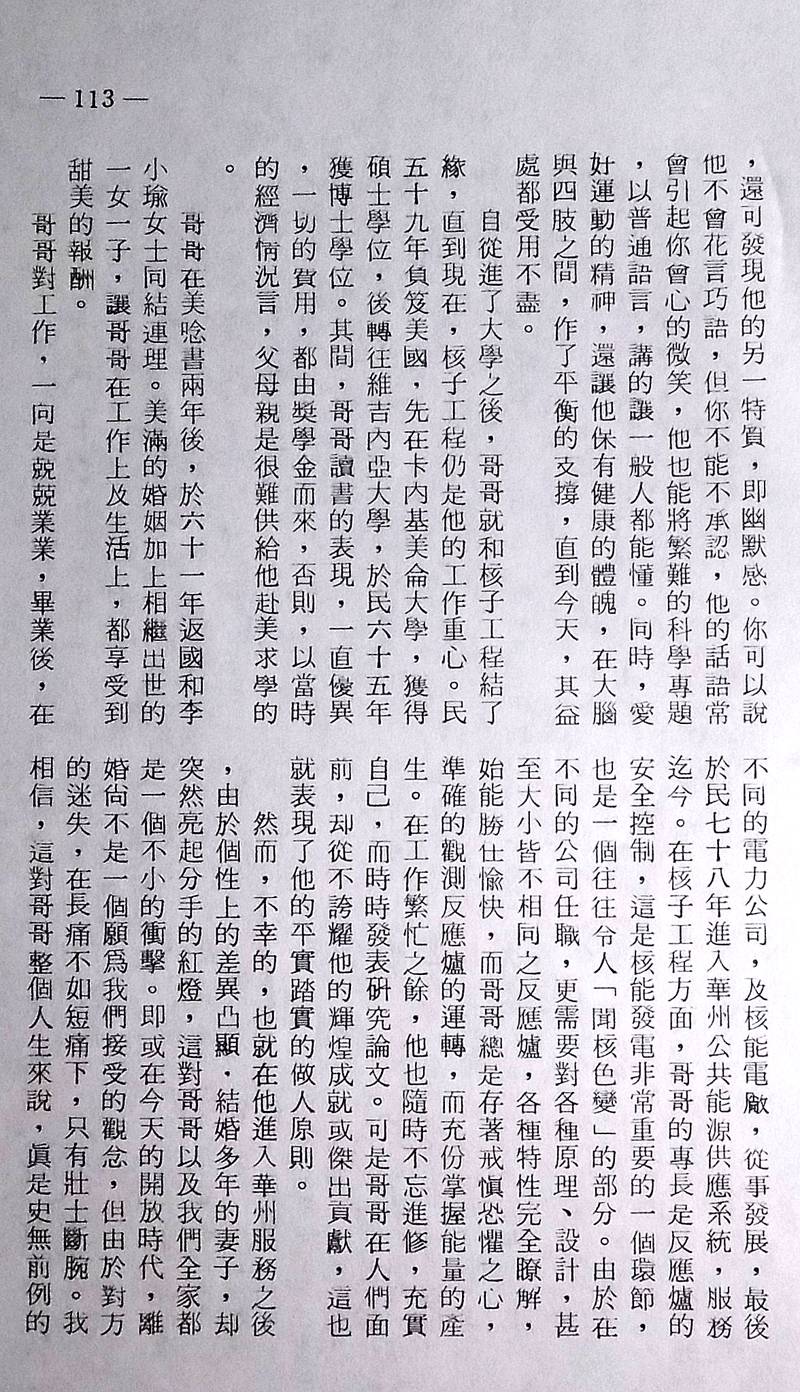 — 113 —
，還可發現他的另一特質，即幽默感。你可以說
他不會花言巧語，但你不能不承認，他的話語常
會引起你會心的微笑，他也能將繁難的科學專題
，以普通語言，講的讓一般人都能懂。同時，愛
好運動的精神，還讓他保有健康的體魄，在大腦
與四肢之間，作了平衡的支撐，直到今天，其益
處都受用不盡。
自從進了大學之後，哥哥就和核子工程結了
緣，直到現在，核子工程仍是他的工作重心。民
五十九年負笈美國，先在卡內基美侖大學，獲得
碩士學位，後轉往維吉內亞大學，於民六十五年
獲博士學位。其間，哥哥讀書的表現，一直優異
，一切的費用，都由獎學金而來，否則，以當時
的經濟情況言，父母親是很難供給他赴美求學的
。
哥哥在美唸書兩年後，於六十一年返國和李
小瑜女士同結連理。美滿的婚姻加上相繼出世的
一女一子，讓哥哥在工作上及生活上，都享受到
甜美的報酬。
哥哥對工作，一向是兢兢業業，畢業後，在
不同的電力公司，及核能電廠，從事發展，最後
於民七十八年進入華州公共能源供應系統，服務
迄今。在核子工程方面，哥哥的專長是反應爐的
安全控制，這是核能發電非常重要的一個環節，
也是一個往往令人「聞核色變」的部分。由於在
不同的公司任職，更需要對各種原理、設計，甚
至大小皆不相同之反應爐，各種特性完全瞭解，
始能勝任愉快，而哥哥總是存著戒慎恐懼之心，
準確的觀測反應爐的運轉，而充份掌握能量的產
生。在工作繁忙之餘，他也隨時不忘進修，充實
自己，而時時發表研究論文。可是哥哥在人們面
前，却從不誇耀他的輝煌成就或傑出貢獻，這也
就表現了他的平實踏實的做人原則。
然而，不幸的，也就在他進入華州服務之後
，由於個性上的差異凸顯．結婚多年的妻子，却
突然亮起分手的紅燈，這對哥哥以及我們全家都
是一個不小的衝擊。即或在今天的開放時代，離
婚尚不是一個願爲我們接受的觀念，但由於對方
的迷失，在長痛不如短痛下，只有壯士斷腕。我
相信，這對哥哥整個人生來說，眞是史無前例的